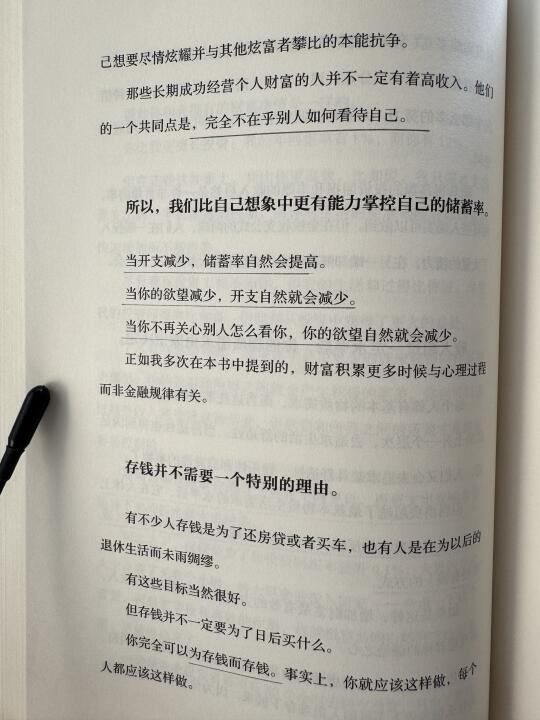 己想要尽情炫耀并与其他炫富者攀比的本能抗争。
那些长期成功经营个人财富的人并不一定有着高收入。他们
的一个共同点是，完全不在乎别人如何看待自己。
所以，我们比自己想象中更有能力掌控自己的储蓄率。
当开支减少，储蓄率自然会提高。
当你的欲望减少，开支自然就会减少。
当你不再关心别人怎么看你，你的欲望自然就会减少。
正如我多次在本书中提到的，财富积累更多时候与心理过程
而非金融规律有关。
存钱并不需要一个特别的理由。
有不少人存钱是为了还房贷或者买车，也有人是在为以后的
退休生活而未雨绸缪。
有这些目标当然很好。
但存钱并不一定要为了日后买什么。
你完全可以为存钱而存钱。事实上，你就应该这样做，每个
人都应该这样做。